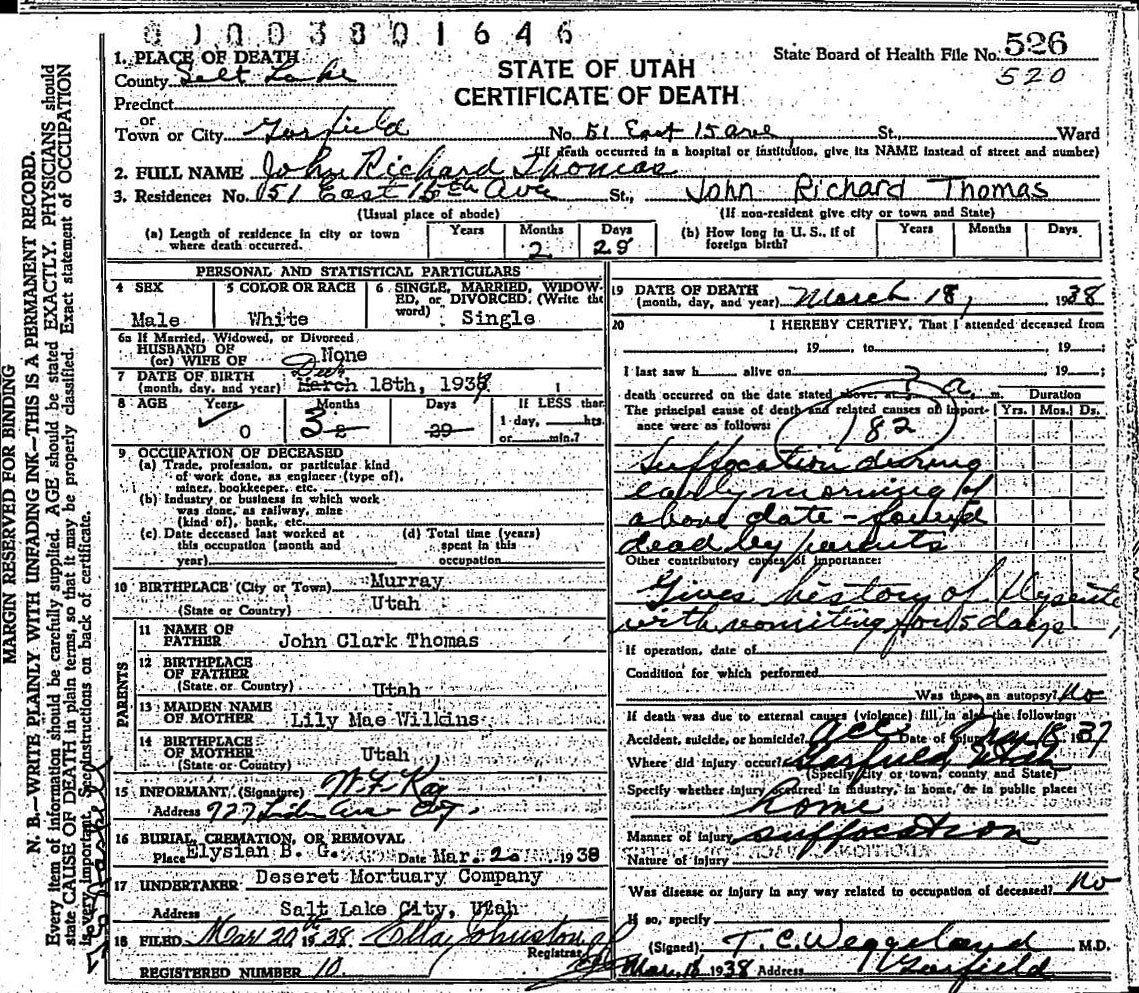 01003801646
1. PLACE OF DEATH
County Salt Lake
Precinct
or
Town or City Garfield No. 51 East 15 ave St., Ward
State Board of Health File No. 526
520
STATE OF UTAH
CERTIFICATE OF DEATH
(If death occurred in a hospital or institution, give its NAME instead of street and number)
2. FULL NAME John Richard Thomas
3. Residence: No. 51 East 15th Ave St., John Richard Thomas
(Usual place of abode) (If non-resident give city or town and State)
(a) Length of residence in city or town where death occurred. Years Months 2 Days 29
(b) How long in U. S., if of foreign birth? Years Months Days
PERSONAL AND STATISTICAL PARTICULARS
4 SEX Male
5 COLOR OR RACE White
6 SINGLE, MARRIED, WIDOWED, or DIVORCED. (Write the word) Single
6a If Married, Widowed, or Divorced
HUSBAND OF
(or) WIFE OF None
7 DATE OF BIRTH
(month, day, and year) Dec. March 18th, 1937
8 AGE Years 0 Months 3 2 Days 29 If LESS than
1 day, hrs.
or min.?
9 OCCUPATION OF DECEASED
(a) Trade, profession, or particular kind
of work done, as engineer (type of),
miner, bookkeeper, etc.
(b) Industry or business in which work
was done, as railway, mine
(kind of), bank, etc.
(c) Date deceased last worked at
this occupation (month and
year)
(d) Total time (years)
spent in this
occupation
10 BIRTHPLACE (City or Town) Murray
(State or Country) Utah
PARENTS
11 NAME OF
FATHER John Clark Thomas
12 BIRTHPLACE
OF FATHER
(State or Country) Utah
13 MAIDEN NAME
OF MOTHER Lily Mae Wilkins
14 BIRTHPLACE
OF MOTHER
(State or Country) Utah
15 INFORMANT (Signature) W. F. Kay
Address 727
16 BURIAL, CREMATION, OR REMOVAL
Place Elysian B. G. Date Mar. 20 1938
17 UNDERTAKER Deseret Mortuary Company
Address Salt Lake City, Utah
18 FILED Mar 20 1938 Ella Johnston
Registrar
REGISTERED NUMBER 10.
19 DATE OF DEATH
(month, day, and year) March 18, 1938
20 I HEREBY CERTIFY, That I attended deceased from
, 19 , to , 19 ;
I last saw h alive on , 19 ;
death occurred on the date stated above, at 3 a. m. Duration
The principal cause of death and related causes of importance were as follows: Yrs. Mos. Ds.
182
Suffocation during
early morning of
above date - found
dead by parents
Other contributory causes of importance:
Gives history of
with vomiting for 5 days
If operation, date of
Condition for which performed
Was there an autopsy? No
If death was due to external causes (violence) fill in also the following:
Accident, suicide, or homicide? Acc. Date of injury Mar 18 1937
Where did injury occur? Garfield, Utah
(Specify city or town, county and State)
Specify whether injury occurred in industry, in home, or in public place:
home
Manner of injury suffocation
Nature of injury
Was disease or injury in any way related to occupation of deceased? No
If so, specify
(Signed) T. C. Weggeland M.D.
Mar. 18 1938 Address Garfield
MARGIN RESERVED FOR BINDING
N. B.—WRITE PLAINLY WITH UNFADING INK—THIS IS A PERMANENT RECORD.
Every item of information should be carefully supplied. AGE should be stated EXACTLY. PHYSICIANS should
state CAUSE OF DEATH in plain terms, so that it may be properly classified. Exact statement of OCCUPATION
is very important. See instructions on back of certificate.